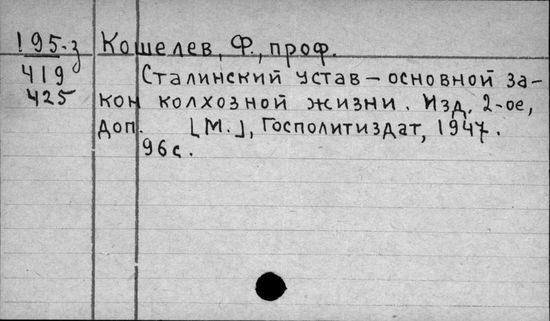 195-з Кошелев, Ф., проф.
419 Сталинский устав – основной за-
425 кон колхозной жизни. Изд. 2-ое,
доп. [М.], Госполитиздат, 1947.
96с.